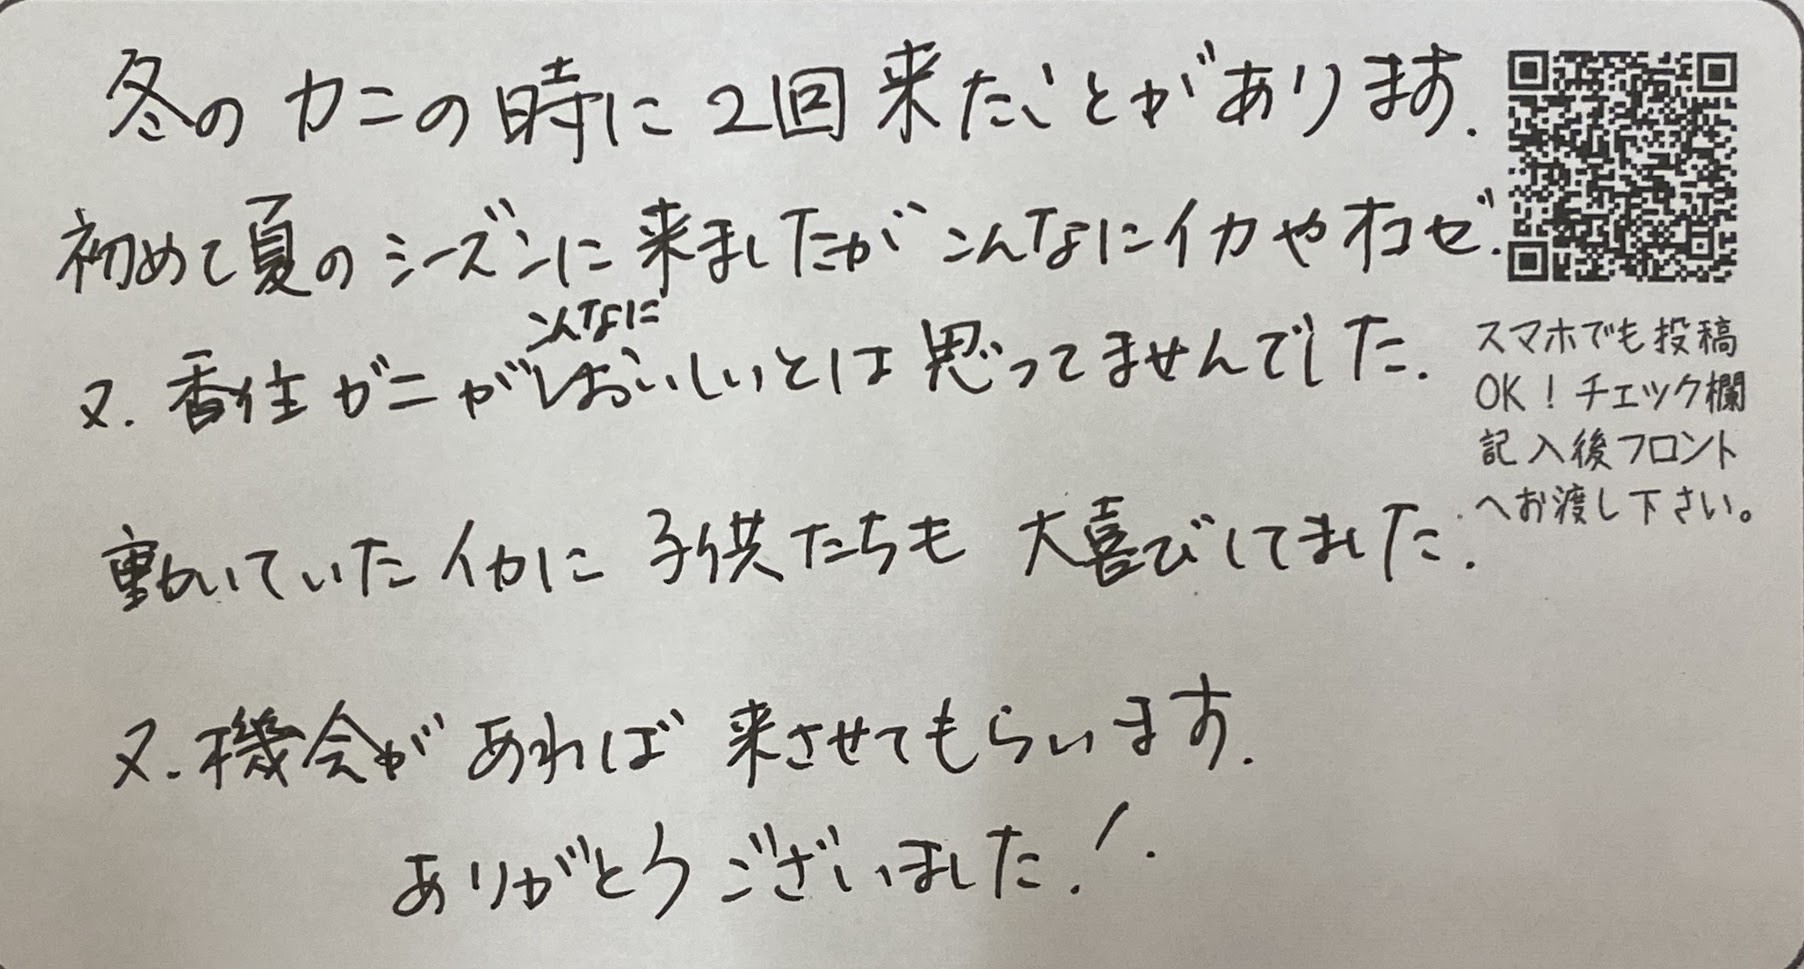 冬のカニの時に2回来たことがあります.
初めて夏のシーズンに来ましたがこんなにイカやオコゼ.
又.香住ガニがこんなにおいしいとは思ってませんでした.
動いていたイカに子供たちも大喜びしてました.
又.機会があれば来させてもらいます.
ありがとうございました!.
スマホでも投稿
OK!チェック欄
記入後フロント
へお渡し下さい。